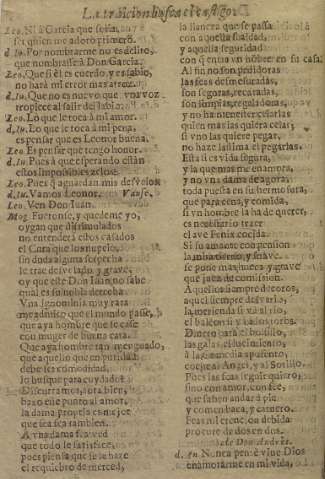 La traicion busca el castigo.
Leo. Ni à Garcia que
ser quien me adorò primero.
d. Iu. Por nombrarme no es delito,
que nombrasse à Don Garcia.
Leo. Que si èl es cuerdo, y es sabio,
no harà mi error mas atroz.
d. Iu. Que no es nuevo que una voz
tropiece al salir del labio.
Leo. Lo que le toca à mi amor.
d. Iu. Lo que le toca à mi pena,
es pensar que es Leonor buena.
Leo. Es pensar que tengo honor.
d. Iu. Pues à que esperando estàn
estos impossibles zelos.
Leo. Pues què aguardan mis desvelos
d. Iu. Vamos Leonor. Vanse.
Leo. Ven Don Iuan.
Mog. Fueronse, y quedeme yo,
oygan que dissimulados
no entenderà estos casados
el Cura que los
sin duda alguna sospecha
le trae desvelado y grave,
oy que este Don Iuan no sabe
qual es su mano derecha.
Vna ignorancia muy rara
me admiro que el mundo passe,
que aya hombre que se case
con muger de buena cara.
Que aya hombre tan
que aquello que en puridad
debe ser comodidad,
lo busque para cuydado!
Discurramos, aora bien,
para què
la dama propia es mejor
que sea fea tambien.
A una dama fea ved
que todo le satisface,
pues piensa que se le hace
el requiebro de merced,
la llaneza que se passa
con aquella
y aquella seguridad
con que entra un hombre en su casa.
Al fin no son pedidoras
las feas desmesuradas,
son seguras, recatadas,
son limpias, regaladoras,
y no ha menester zelarlas
quien mas las quiera zelar;
si uno las quiere pegar,
no haze lastima el pegarlas.
Esta si es vida segura,
y la que mas me enamora,
y no una dama de agora,
toda puesta en su hermosura,
que para cena, y comida,
si un hombre la ha de querer,
es necessario traer
el ave Fenix cocida.
Si su amante con pension
la mira tierno, y suave,
se pone mas huezca y grave
que juez de comission.
à quellos siempre decoros,
aquel siempre desvario,
la merienda si và al rio,
el balcon si vàn los toros.
Dinero para el bolsillo,
las galas, el lucimiento,
à la comedia aposento,
coche al Angel, y al Sotillo.
Pues las feas seguir quiero,
sino con amor, con fee,
que saben andar à pie
y comen baca, y carnero.
Feas mil
procure de dos en dos.
Sale Don Andrès.
d. An. Nunca pensè vive Dios
enamorarme en mi vida,